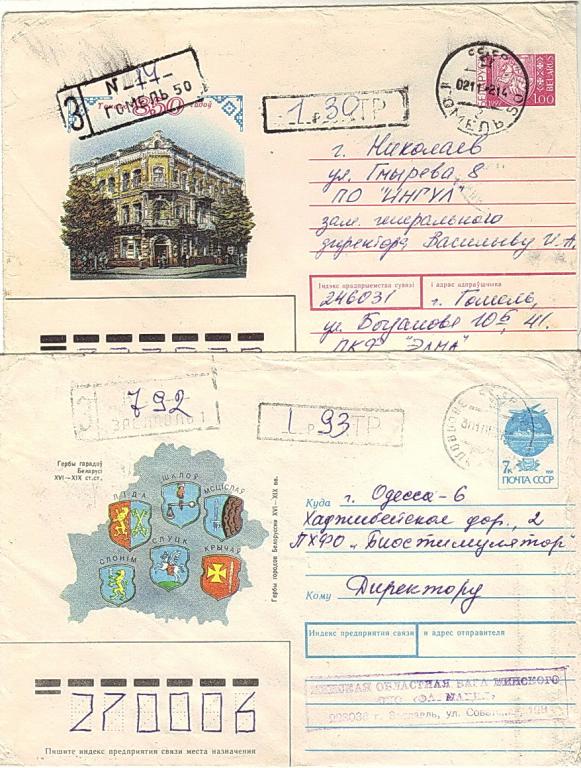 З
№ 14
ГОМЕЛЬ 50
850
1 р 30 ТР
СССР
0211
214
ГОМЕЛЬ 50
BELARUS
1.00
г. Николаев
ул. Гмырева, 8
ПО "ИНГУЛ"
зам. генерального
директора Васильеву И. А
Індэкс прадпрыемства сувязі
і адрас адпраўшчыка
246031
г. Гомель,
ул. Богданова 10Б, 41.
ПКФ "ЭЛМА"
З
792
ЗАСЛАВЛЬ 1
1 р 93 ТР
СССР
7к
ПОЧТА СССР
Гербы гарадоў
Беларусі
XVI—XIX ст.ст.
ЛІДА
ШКЛОЎ
МСЦІСЛАЎ
СЛОНІМ
СЛУЦК
КРЫЧАЎ
Гербы городов Белоруссии XVI—XIX вв.
Куда
г. Одесса-6
Хаджибейская дор., 2
ПХФО „Биостимулятор"
Кому
Директору
Индекс предприятия связи
и адрес отправителя
ОБЛАСТНАЯ БАЗА МИНСКОГО
г. Заславль, ул. Советская,
270006
Пишите индекс предприятия связи места назначения